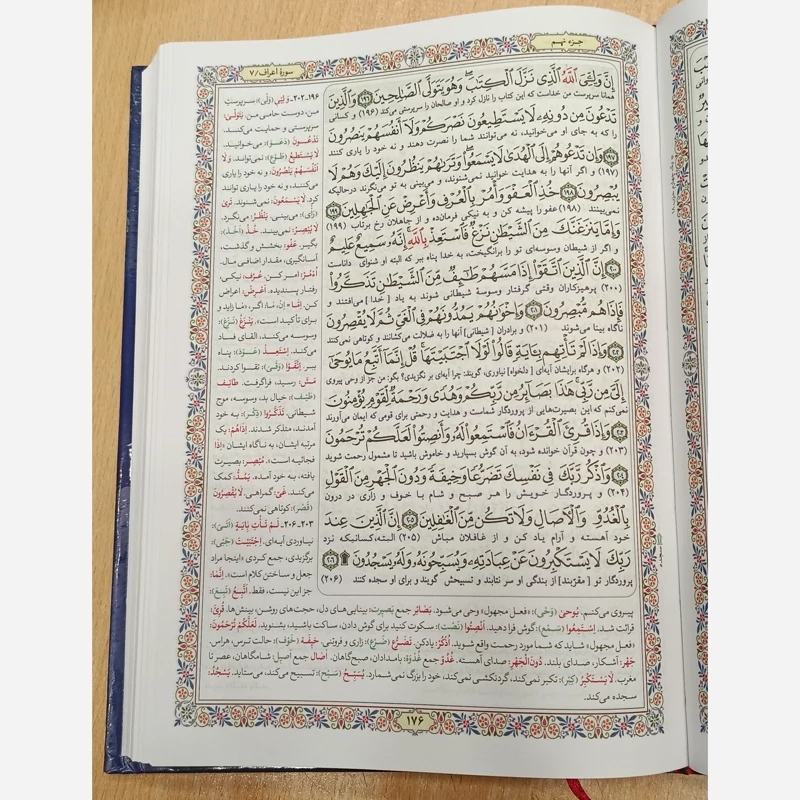 جزء نهم
سورهٔ اعراف/۷
إِنَّ وَلِـِّۧيَ اللَّهُ الَّذِي نَزَّلَ الْكِتَابَ وَهُوَ يَتَوَلَّى الصَّالِحِينَ ﴿١٩٦﴾ وَالَّذِينَ
همانا سرپرست من خداست که این کتاب را نازل کرد و او صالحان را سرپرستی می‌کند (۱۹۶) و کسانی
تَدْعُونَ مِن دُونِهِ لَا يَسْتَطِيعُونَ نَصْرَكُمْ وَلَا أَنفُسَهُمْ يَنصُرُونَ
را که به جای او می‌خوانید، نه می‌توانند شما را نصرت دهند و نه خود را یاری کنند
﴿١٩٧﴾ وَإِن تَدْعُوهُمْ إِلَى الْهُدَى لَا يَسْمَعُوا وَتَرَاهُمْ يَنظُرُونَ إِلَيْكَ وَهُمْ لَا
(۱۹۷) و اگر آنها را به هدایت خوانید نمی‌شنوند، و می‌بینی به تو می‌نگرند درحالیکه
يُبْصِرُونَ ﴿١٩٨﴾ خُذِ الْعَفْوَ وَأْمُرْ بِالْعُرْفِ وَأَعْرِضْ عَنِ الْجَاهِلِينَ ﴿١٩٩﴾
نمی‌بینند (۱۹۸) عفو را پیشه کن و به نیکی فرمان‌ده و از جاهلان رخ برتاب (۱۹۹)
وَإِمَّا يَنزَغَنَّكَ مِنَ الشَّيْطَانِ نَزْغٌ فَاسْتَعِذْ بِاللَّهِ إِنَّهُ سَمِيعٌ عَلِيمٌ
و اگر از شیطان وسوسه‌ای تو را برانگیخت، به خدا پناه ببر که البته او شنوای داناست
﴿٢٠٠﴾ إِنَّ الَّذِينَ اتَّقَوْا إِذَا مَسَّهُمْ طَائِفٌ مِّنَ الشَّيْطَانِ تَذَكَّرُوا
(۲۰۰) پرهیزکاران وقتی گرفتار وسوسهٔ شیطانی شوند به یاد [خدا] می‌افتند و
فَإِذَا هُم مُّبْصِرُونَ ﴿٢٠١﴾ وَإِخْوَانُهُمْ يَمُدُّونَهُمْ فِي الْغَيِّ ثُمَّ لَا يُقْصِرُونَ
ناگاه بینا می‌شوند (۲۰۱) و برادران [شیطانی] آنها را به ضلالت می‌کشانند و کوتاهی نمی‌کنند
﴿٢٠٢﴾ وَإِذَا لَمْ تَأْتِهِم بِآيَةٍ قَالُوا لَوْلَا اجْتَبَيْتَهَا قُلْ إِنَّمَا أَتَّبِعُ مَا يُوحَى
(۲۰۲) و هرگاه برایشان آیه‌ای [دلخواه] نیاوری، گویند: چرا آیه‌ای بر نگزیدی؟ بگو: من جز از وحی پیروی
إِلَيَّ مِن رَّبِّي هَذَا بَصَائِرُ مِن رَّبِّكُمْ وَهُدًى وَرَحْمَةٌ لِّقَوْمٍ يُؤْمِنُونَ
نمی‌کنم که این بصیرت‌هایی از پروردگار شماست و هدایت و رحمتی برای قومی که ایمان می‌آورند
﴿٢٠٣﴾ وَإِذَا قُرِئَ الْقُرْآنُ فَاسْتَمِعُوا لَهُ وَأَنصِتُوا لَعَلَّكُمْ تُرْحَمُونَ
(۲۰۳) و چون قرآن خوانده شود، به آن گوش بسپارید و خاموش باشید تا مشمول رحمت شوید
﴿٢٠٤﴾ وَاذْكُر رَّبَّكَ فِي نَفْسِكَ تَضَرُّعًا وَخِيفَةً وَدُونَ الْجَهْرِ مِنَ الْقَوْلِ
(۲۰۴) و پروردگار خویش را هر صبح و شام با خوف و زاری در درون
بِالْغُدُوِّ وَالْآصَالِ وَلَا تَكُن مِّنَ الْغَافِلِينَ ﴿٢٠٥﴾ إِنَّ الَّذِينَ عِندَ
خود آهسته و آرام یاد کن و از غافلان مباش (۲۰۵) البته، کسانیکه نزد
رَبِّكَ لَا يَسْتَكْبِرُونَ عَنْ عِبَادَتِهِ وَيُسَبِّحُونَهُ وَلَهُ يَسْجُدُونَ ۩ ﴿٢٠٦﴾
پروردگار تو [مقرّبند] از بندگی او سر نتابند و تسبیحش گویند و برای او سجده کنند (۲۰۶)
۱۹۶-۲۰۲. وَلِیّی (وَلْی): سرپرستِ
من، دوست حامی من. یَتَوَلّیٰ:
سرپرستی و حمایت می‌کند.
تَدْعُـونَ (دَعَوَ): می‌خوانید.
لا یَسْتَطیعُ (طَوْع): نمی‌تواند. وَلا
اَنْفُسَهُمْ یَنْصُرُونَ: و نه خود را یاری
می‌کنند، و نه خود را یاری توانند
کرد. لا یَسْمَعُونَ: نمی‌شنوند. تَریٰ
(رَأی): می‌بینی. یَنْظُرُ: می‌نگرد.
لا یُبْصِرُ: نمی‌بیند. خُذْ (اَخْذ):
بگیر. عَفْو: بخشش و گذشت،
آسانگیری، مقدار اضافی مال.
اُمُرْ: امر کن. عُرْف: نیکی،
رفتار پسندیده. اَعْرِضْ: اعراض
کن. اِمّا: اِنْ، ما: اگر، «ما» زاید و
برای تأکید است». یَنْزَغُ (نَزْغ):
وسوسه می‌کند، القای فساد
می‌کند. اِسْتَعِذْ (عَوْذ): پناه
ببر. اِتَّقَوْا (وَقْی): تقوا کردند.
مَسَّ: رسید، فراگرفت. طائِف
(طَیْف): خیال بد، وسوسه، موج
شیطانی. تَذَکَّرُوا (ذِکْر): به خود
آمدند، متذکر شدند. اِذاهُمْ: یک
مرتبه ایشان، به ناگاه ایشان «اِذا
فجائیه است». مُبْصِر: بصیرت
یافته، به خود آمده. یَمُدُّ: کمک
می‌کند. غَیّ: گمراهی. لا یُقْصِرُونَ
(قَصْر): کوتاهی نمی‌کنند.
۲۰۳-۲۰۶. لَـمْ تَـأْتِ بِآیَةٍ (اَتْی):
نیاوردی آیه‌ای. اِجْتَبَیْتَ (جَبْی):
برگزیدی، جمع کردی «اینجا مراد
جعل و ساختن کلام است». اِنَّما:
جز این نیست، فقط. اَتَّبِعُ (تَبِعَ):
پیروی می‌کنم. یُوحیٰ (وَحْی): «فعل مجهول» وحی می‌شود. بَصائِر جمع بَصیرت: بینایی‌های دل، حجت‌های روشن، بینش‌ها. قُرِئَ:
قرائت شد. اِسْتَمِعُوا (سَمْع): گوش فرا دهید. اَنْصِتُوا (نَصْت): سکوت کنید برای گوش دادن، ساکت باشید، بشنوید. لَعَلَّکُمْ تُرْحَمُونَ:
«فعل مجهول»: شاید که شما مورد رحمت واقع شوید. اُذْکُرْ: یادکن. تَضَرُّع (ضَرْع): زاری و فروتنی. خیفَة (خَوْف): حالت ترس، هراس.
جَهْر: آشکار، صدای بلند. دُونَ الْجَهْرِ: صدای آهسته. غُدُوّ جمع غُدْوَة: بامدادان، صبح‌گاهان. آصال جمع اَصیل: شامگاهان، عصر تا
مغرب. لا یَسْتَکْبِرُ (کِبْر): تکبر نمی‌کند، گردنکشی نمی‌کند، خود را بزرگ نمی‌شمارد. یُسَبِّحُ (سَبْح): تسبیح می‌کند، می‌ستاید. یَسْجُدُ:
سجده می‌کند.
سجده
۱۷۶